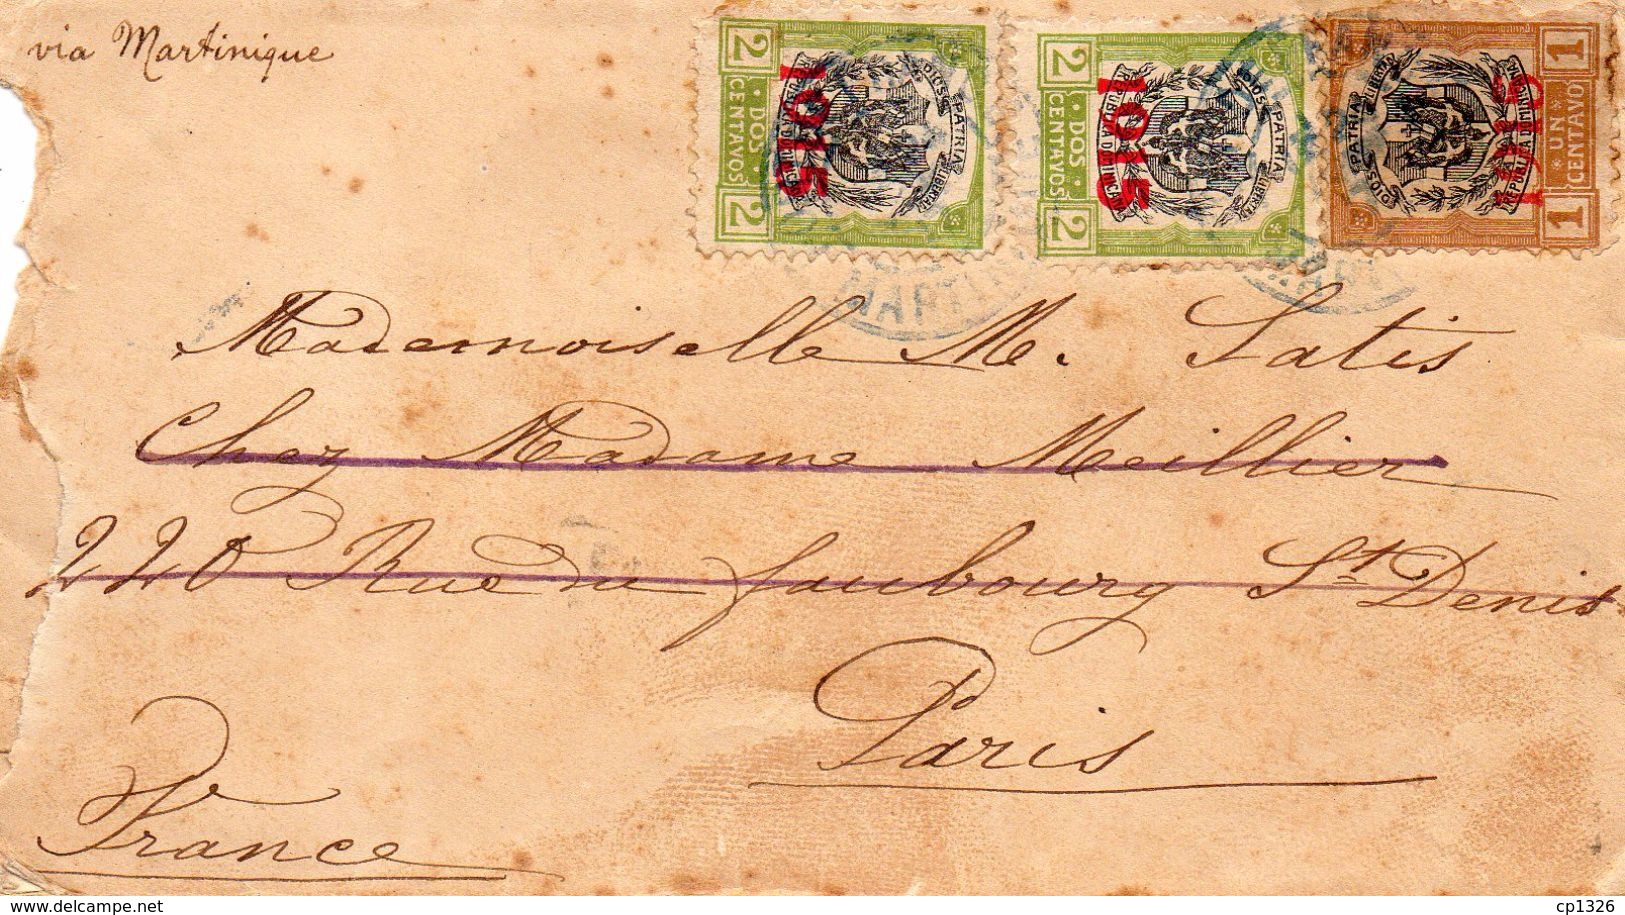 via Martinique
2 2
DOS CENTAVOS
DIOS PATRIA LIBERTAD
REPUBLICA DOMINICANA
1915
2 2
DOS CENTAVOS
DIOS PATRIA LIBERTAD
REPUBLICA DOMINICANA
1915
1 1
UN CENTAVO
DIOS PATRIA LIBERTAD
REPUBLICA DOMINICANA
1915
Mademoiselle M. Satis
Chez Madame Meillier
220 Rue du faubourg St Denis
Paris
France
www.delcampe.net
cp1326